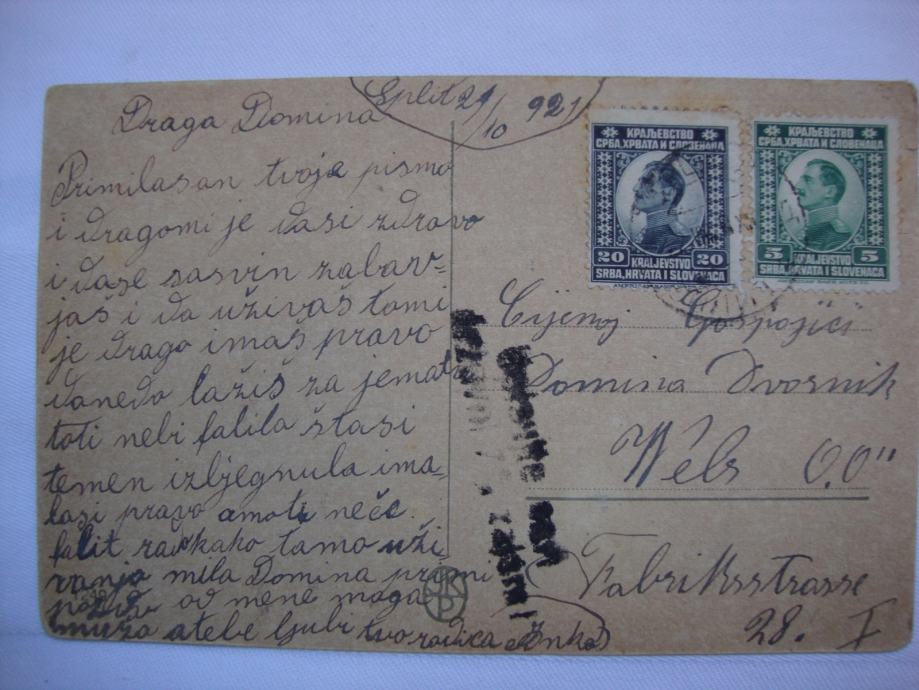 Split 21/10 921
Draga Domina
Primilasan tvoje pismo
i dragomi je dasi zdravo
i dase sasvin zabav=
jaš i da uživaš tomi
je drago imaš pravo
danedo lažiš za jematv
toti nebi falila štasi
temen izbjegnula ima=
lasi pravo amoti neče
falit za kako tamo uži
vanja mila Domina primi
pozdrav od mene moga
muža atebe ljubi tvo rodica
КРАЉЕВСТВО
СРБА, ХРВАТА И СЛОВЕНАЦА
20 20
KRALJEVSTVO
SRBA, HRVATA I SLOVENACA
КРАЉЕВСТВО
СРБА, ХРВАТА И СЛОВЕНАЦА
5 5
KRALJEVSTVO
SRBA, HRVATA I SLOVENACA
Cijenoj Gospojići
Domina Dvornik
Wels O.O"
Fabriksstrasse
28. I